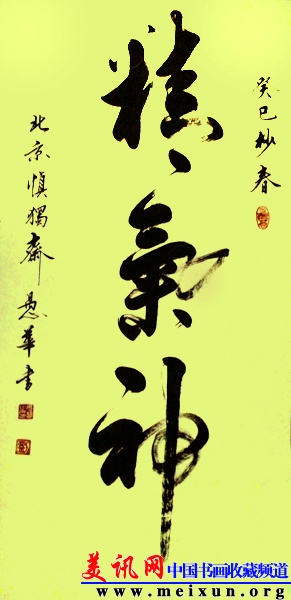 癸巳杪春
精氣神
北京慎獨齋華書
美讯网 中国书画收藏频道
www.meixun.org